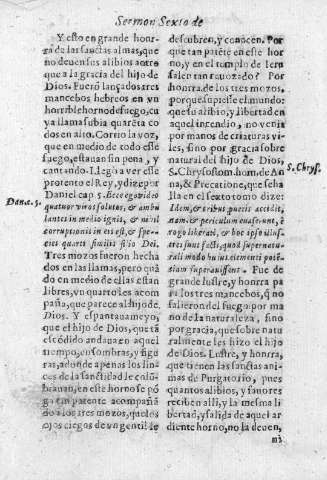 Sermon Sexto de
Y esto en grande honr-
ra de las sanctas almas, que
no deuen sus alibios a otro
que a la gracia del hijo de
Dios. Fuerõ lançados tres
mancebos hebreos en vn
horrible horno de fuego, cu
ya llama subia quarẽta co
dos en alto. Corrio la voz,
que en medio de todo esse
fuego, estauan sin pena, y
cantando. Llega a ver esse
portento el Rey, y dize por
Daniel cap 3. Ecce ego video
quatuor viros solutos, & ambu
lantes in medio ignis, & nihil
corruptionis in eis est, & spe-
cies quarti similis filio Dei.
Tres mozos fueron hecha
dos en las llamas, pero quã
do en medio de ellas estan
libres, vn quarto les acom
paña, que parece al hijo de
Dios. Y es pantaua me yo,
que el hijo de Dios, que està
escõdido andaua en aquel
tiempo, en sombras, y figu
ras, a donde apenas los lin-
ces de la sanctidad le colũ-
biauan, en este horno se pó
ga en patente acompañã
do a los tres mozos, que los
ojos ciegos de vn gentil le
Dan. c. 3.
descubren, y conocen. Por
que tan patẽte en este hor
no, y en el templo de Ieru
salen tan rebozado? Por
honrra de los tres mozos.
porque supiesse el mundo:
que su alibio, y libertad en
aquel incendio, no venia
por manos de criaturas vi
les, sino por gracia sobre
natural del hijo de Dios,
S. Chrysostom. hom. de An
na, & Precatione, que se ha
lla en el sexto tomo dize:
Idem, & tribus pueris accidit,
nam & periculum euaserunt, &
rogo liberati, & hoc ipso illust-
res sunt facti, quod supernatu-
rali modo huius elementi potẽ-
tiam superauissent. Fue de
grande lustre, y honrra pa
ra los tres mancebos, q̃ no
salieron del fuego por ma
no de la naturaleza, sino
por gracia, que sobre natu
ralmente les hizo el hijo
de Dios. Lustre, y honrra,
que tienen las sanctas ani
mas de Purgatorio, pues
quantos alibios, y fauores
reciben alli, y la mesma li
bertad, y salida de aquel ar
diente horno, no la deuen,
S. Chrys.
ni